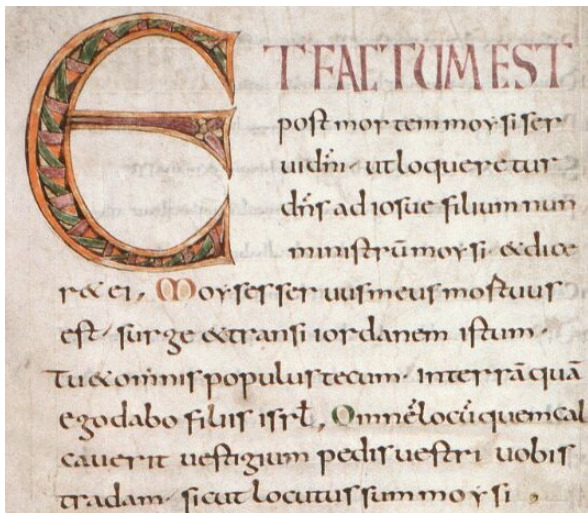 ET FACTUM EST
post mortem moysi ser
ui dni · ut loqueretur
dns ad iosue filium nun
ministrū moysi · & dice
r& ei, Moyses seruus meus mortuus
est · surge & transi iordanem istum ·
Tu & omnis populus tecum · in terrā quā
ego dabo filiis isrł, Omnē locū quem cal
cauerit uestigium pedis uestri uobis
tradam · sicut locutus sum moysi ·